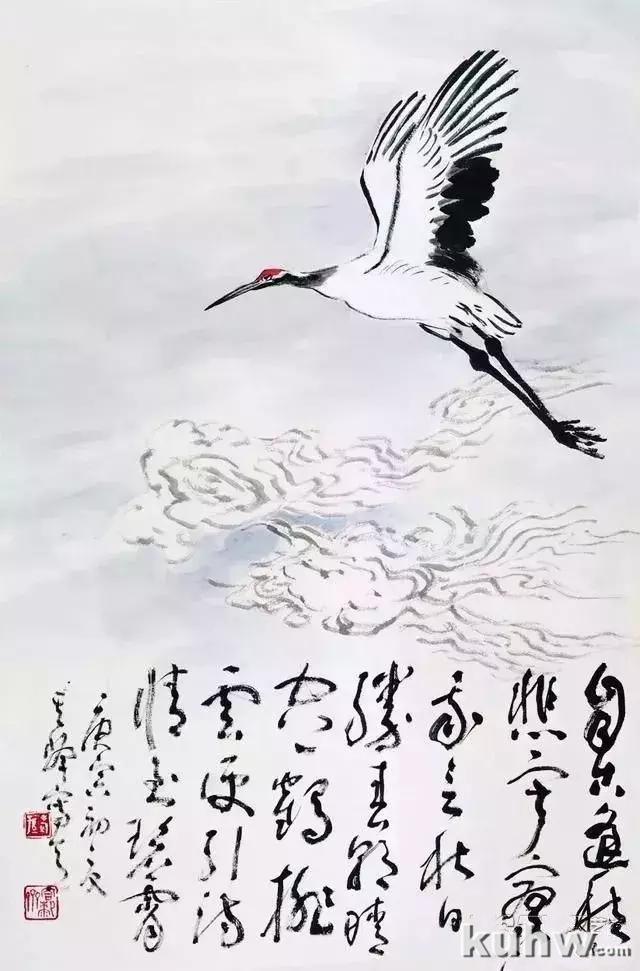 自古逢秋
悲寂寥
我言秋日
勝春朝晴
空一鶴排
雲便引詩
情到碧霄
庚寅初
kuhw.com